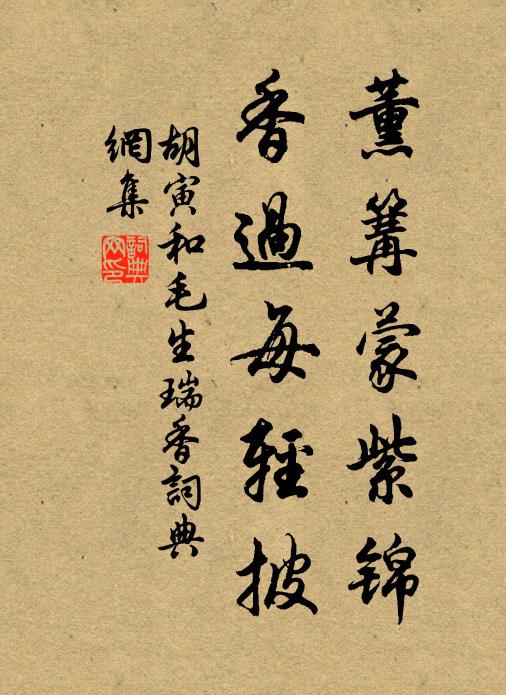 薰篝蒙紫锦
香過每輕披
胡寅和毛生瑞香詞典
網集
詞典
网印